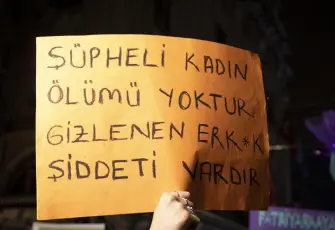 ŞÜPHELİ KADIN
ÖLÜMÜ YOKTUR,
GİZLENEN ERK*K
ŞİDDETİ VARDIR